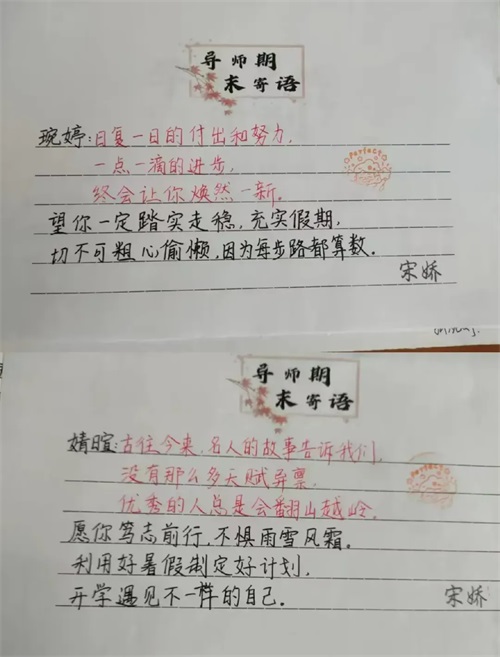 导师期
末寄语
琬婷:日复一日的付出和努力,
一点一滴的进步,
终会让你焕然一新。
Perfect
望你一定踏实走稳,充实假期,
切不可粗心偷懒,因为每步路都算数.
宋娇
导师期
末寄语
婧暄:古往今来,名人的故事告诉我们,
没有那么多天赋异禀,
优秀的人总是会翻山越岭.
愿你笃志前行,不惧雨雪风霜.
利用好暑假制定好计划,
开学遇见不一样的自己.
宋娇